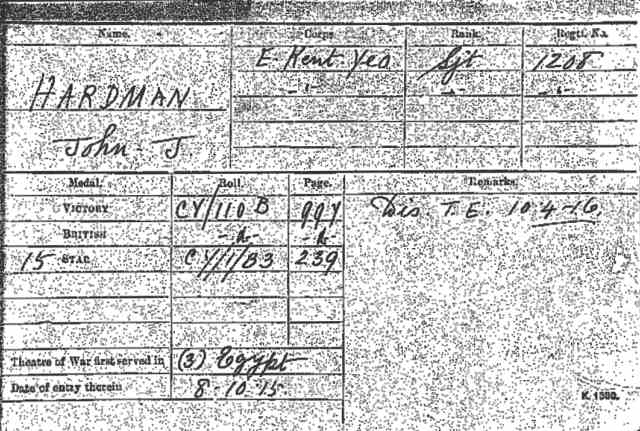 Name. Corps. Rank. Regtl. No.
HARDMAN E. Kent. Yeo Sjt 1208
John. J. -"- -"- -"-
Medal. Roll. Page. Remarks.
VICTORY CY/110 B 997 Dis. T.E. 10-4-16.
BRITISH -do- -do-
15 STAR CY/1/83 239
Theatre of War first served in (3) Egypt
Date of entry therein 8-10-15.
K. 1380.